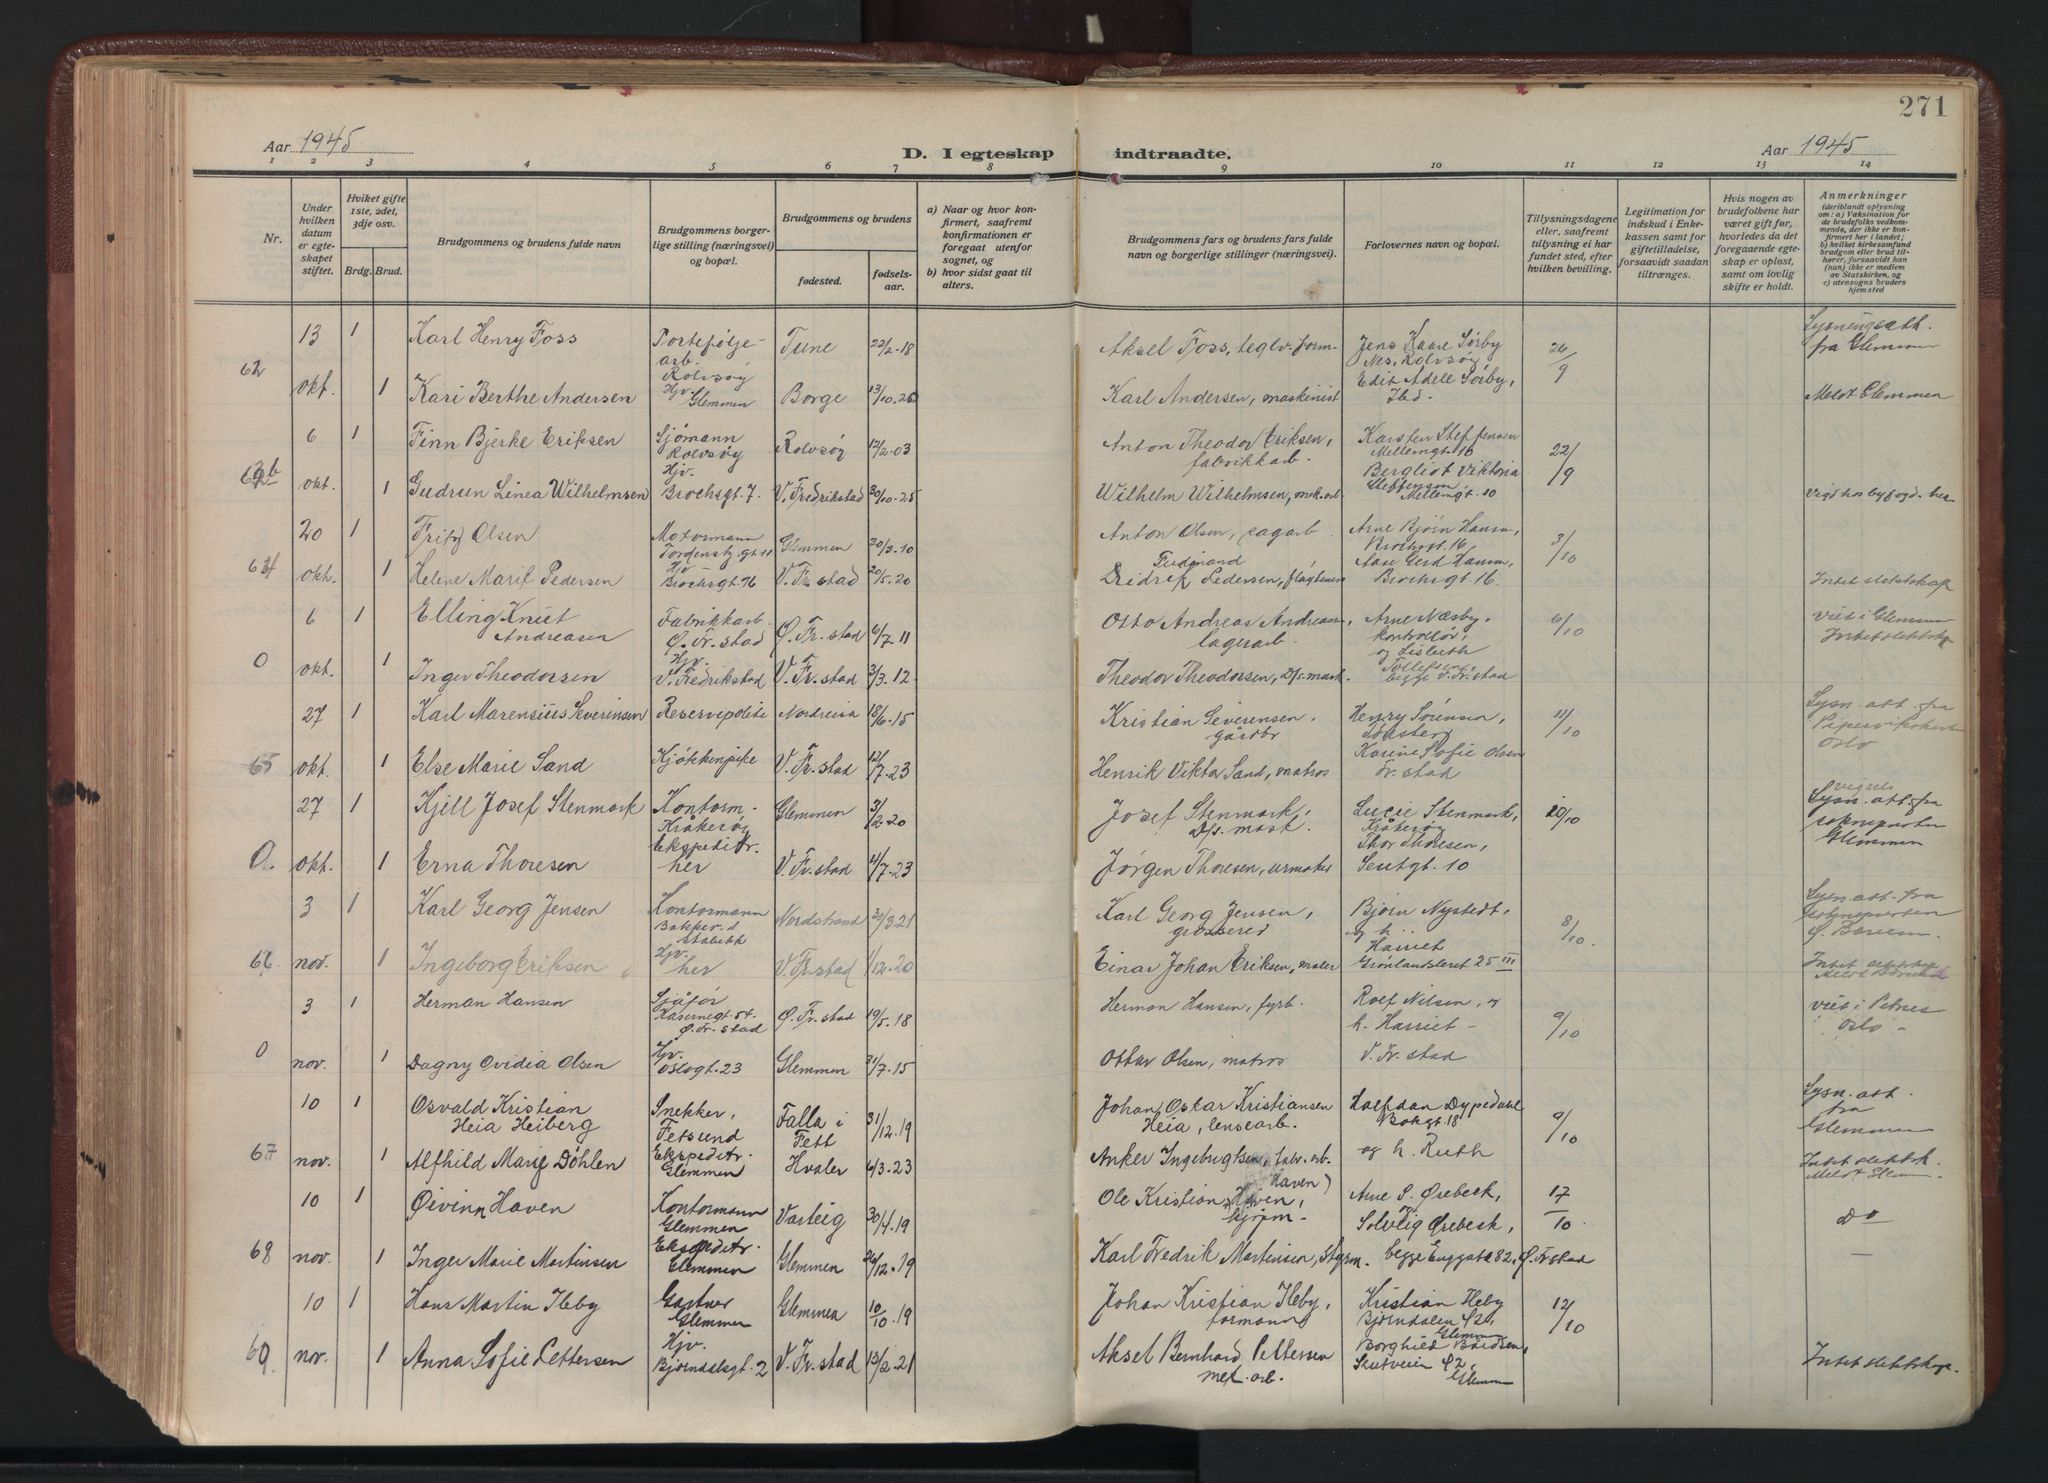 271
Aar 1945
D. I egteskap indtraadte.
Aar 1945
1 2 3 4 5 6 7 8 9 10 11 12 13 14
Nr.
Under hvilken datum er egteskapet stiftet.
Hviket gifte 1ste, 2det, 3dje osv.
Brdg. Brud.
Brudgommens og brudens fulde navn
Brudgommens borgerlige stilling (næringsvei) og bopæl.
Brudgommens og brudens
fødested.
fødselsaar.
a) Naar og hvor konfirmert, saafremt konfirmationen er foregaat utenfor sognet, og
b) hvor sidst gaat til alters.
Brudgommens fars og brudens fars fulde navn og borgerlige stillinger (næringsvei).
Forlovernes navn og bopæl.
Tillysningsdagene eller, saafremt tillysning ei har fundet sted, efter hvilken bevilling.
Legitimation for indskud i Enkekassen samt for giftetilladelse, forsaavidt saadan tiltrænges.
Hvis nogen av brudefolkene har været gift før, hvorledes da det foregaaende egteskap er opløst, samt om lovlig skifte er holdt.
Anmerkninger
(deriblandt oplysning om: a) Vaksination for de brudefolks vedkommende, der ikke er konfirmert her i landet; b) hvilket kirkesamfund brudgom eller brud tilhører, forsaavidt han (hun) ikke er medlem av Statskirken, og c) utensogns bruders hjemsted
13 1 Karl Henry Foss Portefølje-arb. Rolvsøy Tune 22/2-18 Aksel Foss, teglv. form. Jens Kaare Sørby Nes, Rolvsøy 26/9 Lysningsatt. fra Glemmen
62 okt. 1 Kari Berthe Andersen Hjv. Glemmen Borge 13/10.20 Karl Andersen, maskinist Edit Adele Sørby, Ibd. Meldt Glemmen
6 1 Finn Bjerke Eriksen Sjømann Rolvsøy Rolvsøy 12/2.03 Anton Theodor Eriksen, fabrikkarb. Karsten Steffensen Mellemgt. 16 22/9
okt. 1 Gudrun Linea Wilhelmsen Hjv. Brochsgt. 7. V. Fredrikstad 30/10-25 Wilhelm Wilhelmsen, mek. arb. Bergliot Viktoria Steffensen Mellemgt. 10
20 1 Fritz Olsen Motormann Tordenskj. gt. 11 Glemmen 30/3.10 Anton Olsen, sagarb. Arne Bjørn Hansen, Brochsgt. 16 3/10
okt. 1 Helene Marie Pedersen Hjv. Brochsgt. 76 V. Fr. stad 20/5.20 Didrik Ferdinand Pedersen, Brochsgt. 16. Intet slektskap
6 1 Elling Knut Andreasen Fabrikkarb. Ø. Fr. stad Ø. Fr. stad 6/7.11 Otto Andreas Andreasen lagerarb. Arne Næsby, kontrollør, 6/10 viet i Glemmen Intet slektskap
0 okt. 1 Inger Theodorsen Hjv. V. Fredrikstad V. Fr. stad 3/3.12 Theodor Theodorsen, D/s. mask. og Lisbeth Tollefsen, begge V. Fr. stad
27 1 Karl Marensius Severinsen Reservepoliti Nordreisa 18/6.15 Kristian Severensen, gårdbr. Henry Sørensen, 11/10 Lysn. att. fra Oslo
65 okt. 1 Else Marie Sand Kjøkkenpike V. Fr. stad 12/7.23 Henrik Viktor Sand, matros Karine Sofie Olsen Fr. stad
27 1 Kjell Josef Stenmark Kontorm. Kråkerøy Glemmen 3/2.20 Josef Stenmark, D/s. mask. Lucie Stenmark, Kråkerøy 20/10 vigsels Lysn. att. fra Glemmen
0. okt. 1 Erna Thoresen Ekspeditr. her V. Fr. stad 4/7.23 Jørgen Thoresen, urmaker Thor Thoresen, 10
3 1 Karl Georg Jensen Kontormann Nordstrand 30/3.21 Karl Georg Jensen, grosserer Bjørn Nystedt, 8/10. Lysn. att. fra
66 nov. 1 Ingeborg Eriksen Hjv. her V. Fr. stad 1/12.20 Einar Johan Eriksen, maler og h. Harriet Grønlandsleret 25 III
3 1 Herman Hansen Sjåfør Kasernegt. 54. Ø. Fr. stad Ø. Fr. stad 19/5.18 Herman Hansen, fyrb. Rolf Nilsen, og 9/10 viet i Oslo
0 nov. 1 Dagny Ovidia Olsen Hjv. Oslogt. 23 Glemmen 31/7.15 Ottar Olsen, matros h. Harriet - V. Fr. stad
10 1 Osvald Kristian Heia Heiberg Snekker, Fetsund Falla i Fett 31/12.19 Johan Oskar Kristiansen Heia, lensearb. Halfdan Dypedahl Bakgt. 18 9/10 Lysn. att. fra Glemmen
67 nov. 1 Alfhild Marie Döhlen Ekspeditr. Glemmen Hvaler 6/3.23 Anker Ingebrigtsen, fabr. arb. og h. Ruth Intet slektsk. Meldt Glemm.
10 1 Øivinn Haven Kontormann Glemmen Varteig 30/4.19 Ole Kristian Haven, (Haven) Arne S. Ørebeck, 17/10 do
68 nov. 1 Inger Marie Martinsen Ekspeditr. Glemmen Glemmen 26/12.19 Karl Fredrik Martinsen, styrm. Solvlig Ørebeck, begge Enggata 82, Ø. Fr. stad —
10 1 Hans Martin Ileby Gartner Glemmen Glemmen 10/10.19 Johan Kristian Ileby, formann Kristian Ileby Bjørndalen 42, Glemmen 12/10
69 nov. 1 Anna Sofie Pettersen Hjv. Bjørndalsgt. 2 V. Fr. stad 13/2.21 Aksel Bernhard Pettersen met. arb. Borghild Bårdsen, Skutveien 42, Glemmen Intet slektskap.